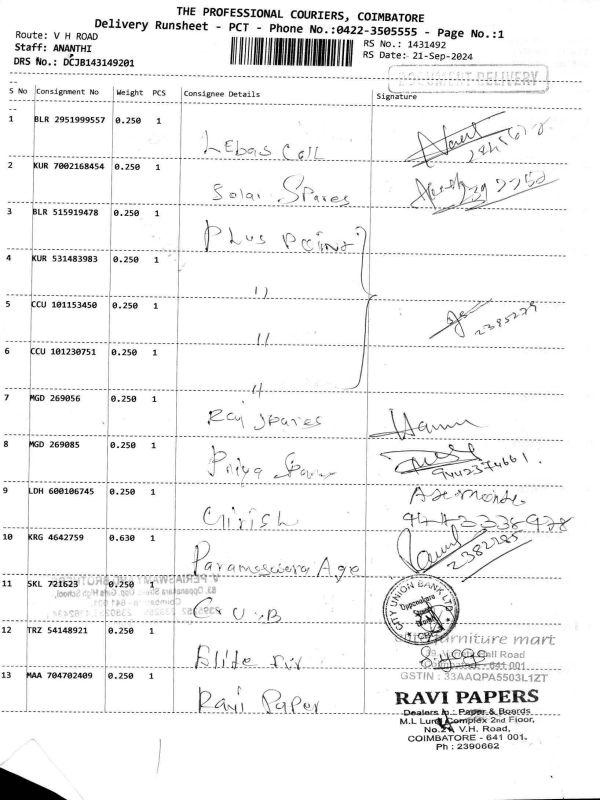 THE PROFESSIONAL COURIERS, COIMBATORE
Delivery Runsheet - PCT - Phone No.:0422-3505555 - Page No.:1
Route: V H ROAD
Staff: ANANTHI
DRS No.: DCJB143149201
RS No.: 1431492
RS Date: 21-Sep-2024
DOCUMENT DELIVERY
S No Consignment No Weight PCS Consignee Details Signature
1 BLR 2951999557 0.250 1 Lebas Cell
2 KUR 7002168454 0.250 1 Solar Spares
3 BLR 515919478 0.250 1 Plus Point
4 KUR 531483983 0.250 1 11
5 CCU 101153450 0.250 1 11 2385229
6 CCU 101230751 0.250 1 11
7 MGD 269056 0.250 1 Raj Spares
8 MGD 269085 0.250 1 Priya Spares 9442374661.
9 LDH 600106745 0.250 1 Girish
10 KRG 4642759 0.630 1 Parameswara Age 2382285
11 SKL 721623 0.250 1 C U B
CITY UNION BANK LTD
12 TRZ 54148921 0.250 1 Elite
furniture mart
641 001
GSTIN : 33AAQPA5503L1ZT
13 MAA 704702409 0.250 1 Ravi Paper
RAVI PAPERS
Dealers in : Paper & Boards
M.L Lund Complex 2nd Floor,
V.H. Road,
COIMBATORE - 641 001.
Ph : 2390662